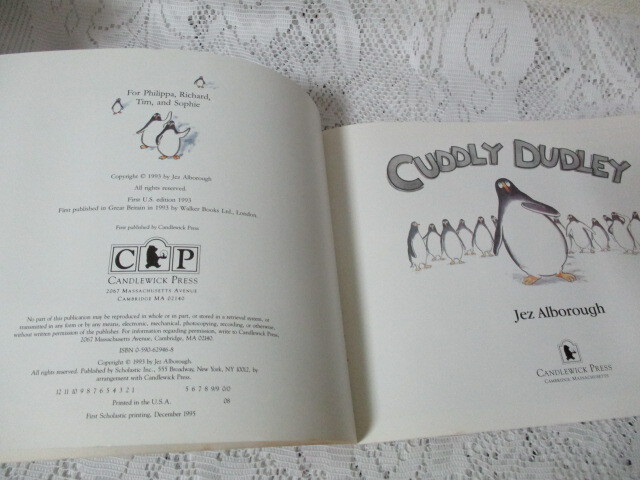 For Philippa, Richard,
Tim, and Sophie
Copyright © 1993 by Jez Alborough
All rights reserved.
First U.S. edition 1993
First published in Great Britain in 1993 by Walker Books Ltd., London.
First published by Candlewick Press
C P
CANDLEWICK PRESS
2067 MASSACHUSETTS AVENUE
CAMBRIDGE MA 02140
No part of this publication may be reproduced in whole or in part, or stored in a retrieval system, or
transmitted in any form or by any means, electronic, mechanical, photocopying, recording, or otherwise,
without written permission of the publisher. For information regarding permission, write to Candlewick Press,
2067 Massachusetts Avenue, Cambridge, MA 02140.
ISBN 0-590-62946-8
Copyright © 1993 by Jez Alborough.
All rights reserved. Published by Scholastic Inc., 555 Broadway, New York, NY 10012, by
arrangement with Candlewick Press.
12 11 10 9 8 7 6 5 4 3 2 1 5 6 7 8 9/9 0/0
Printed in the U.S.A. 08
First Scholastic printing, December 1995
CUDDLY DUDLEY
Jez Alborough
CANDLEWICK PRESS
CAMBRIDGE, MASSACHUSETTS